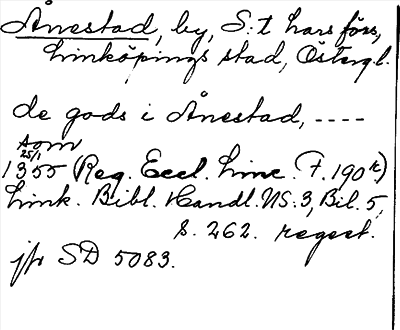 Ånestad, by, S:t Lars förs,
Linköpings stad, Östergl.
de gods i Ånestad, ----
som
25/1
1355 (Reg. Eccl. Linc. F. 190 r.)
Link. Bibl. Handl. NS: 3, Bil. 5,
s. 262. regest.
jfr SD 5083.